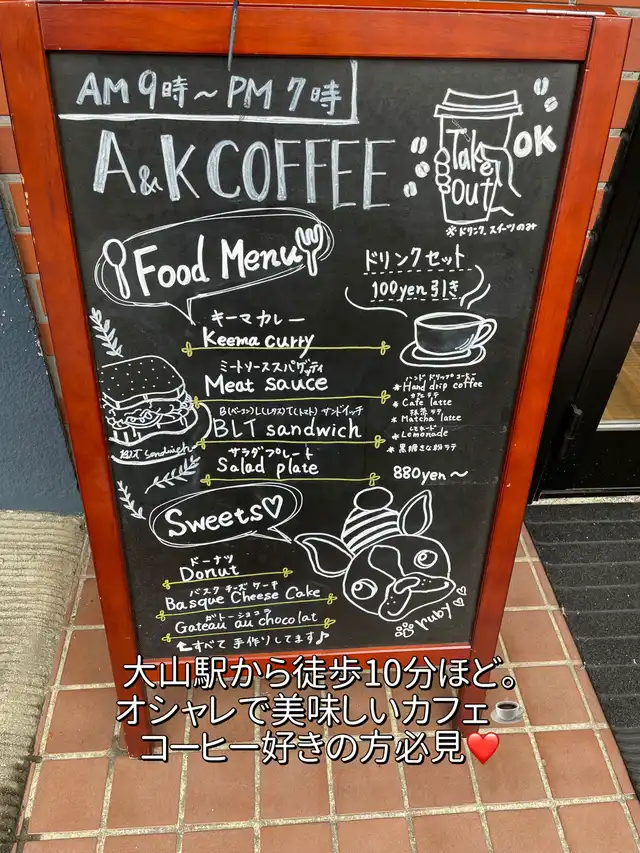 AM 9時～PM 7時
A&K COFFEE
Take out OK
※ドリンク、スイーツのみ
Food Menu
ドリンクセット
100yen引き
キーマカレー
Keema curry
ミートソーススパゲッティ
Meat sauce
B(ベーコン)L(レタス)T(トマト)サンドイッチ
BLT sandwich
サラダプレート
Salad plate
BLT Sandwich
ハンドドリップコーヒー
※Hand drip coffee
カフェラテ
※Cafe latte
抹茶ラテ
※Matcha latte
レモネード
※Lemonade
※黒糖きな粉ラテ
880yen～
Sweets♡
ドーナツ
Donut
バスクチーズケーキ
Basque Cheese Cake
ガトーショコラ
Gateau au chocolat
すべて手作りしてます♪
ruby
大山駅から徒歩10分ほど。
オシャレで美味しいカフェ☕
コーヒー好きの方必見❤️